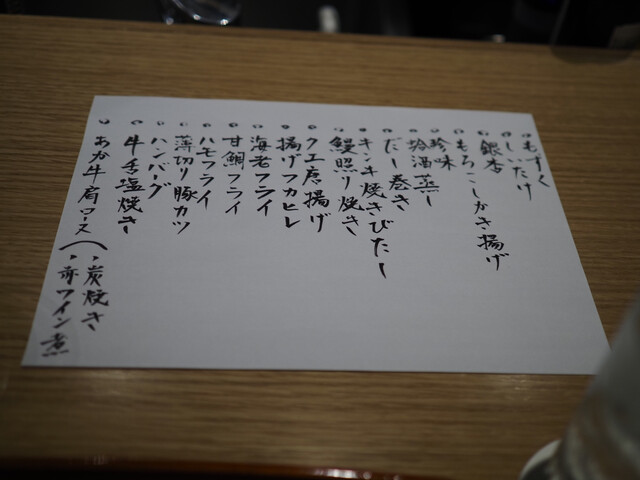 もずく
しいたけ
銀杏
もろこしかき揚げ
珍味
蛤酒蒸し
だし巻き
キンキ焼きびたし
鰻照り焼き
クエ唐揚げ
揚げフカヒレ
海老フライ
甘鯛フライ
ハモフライ
薄切り豚カツ
ハンバーグ
牛舌塩焼き
あか牛肩ロース(・炭焼き
・赤ワイン煮